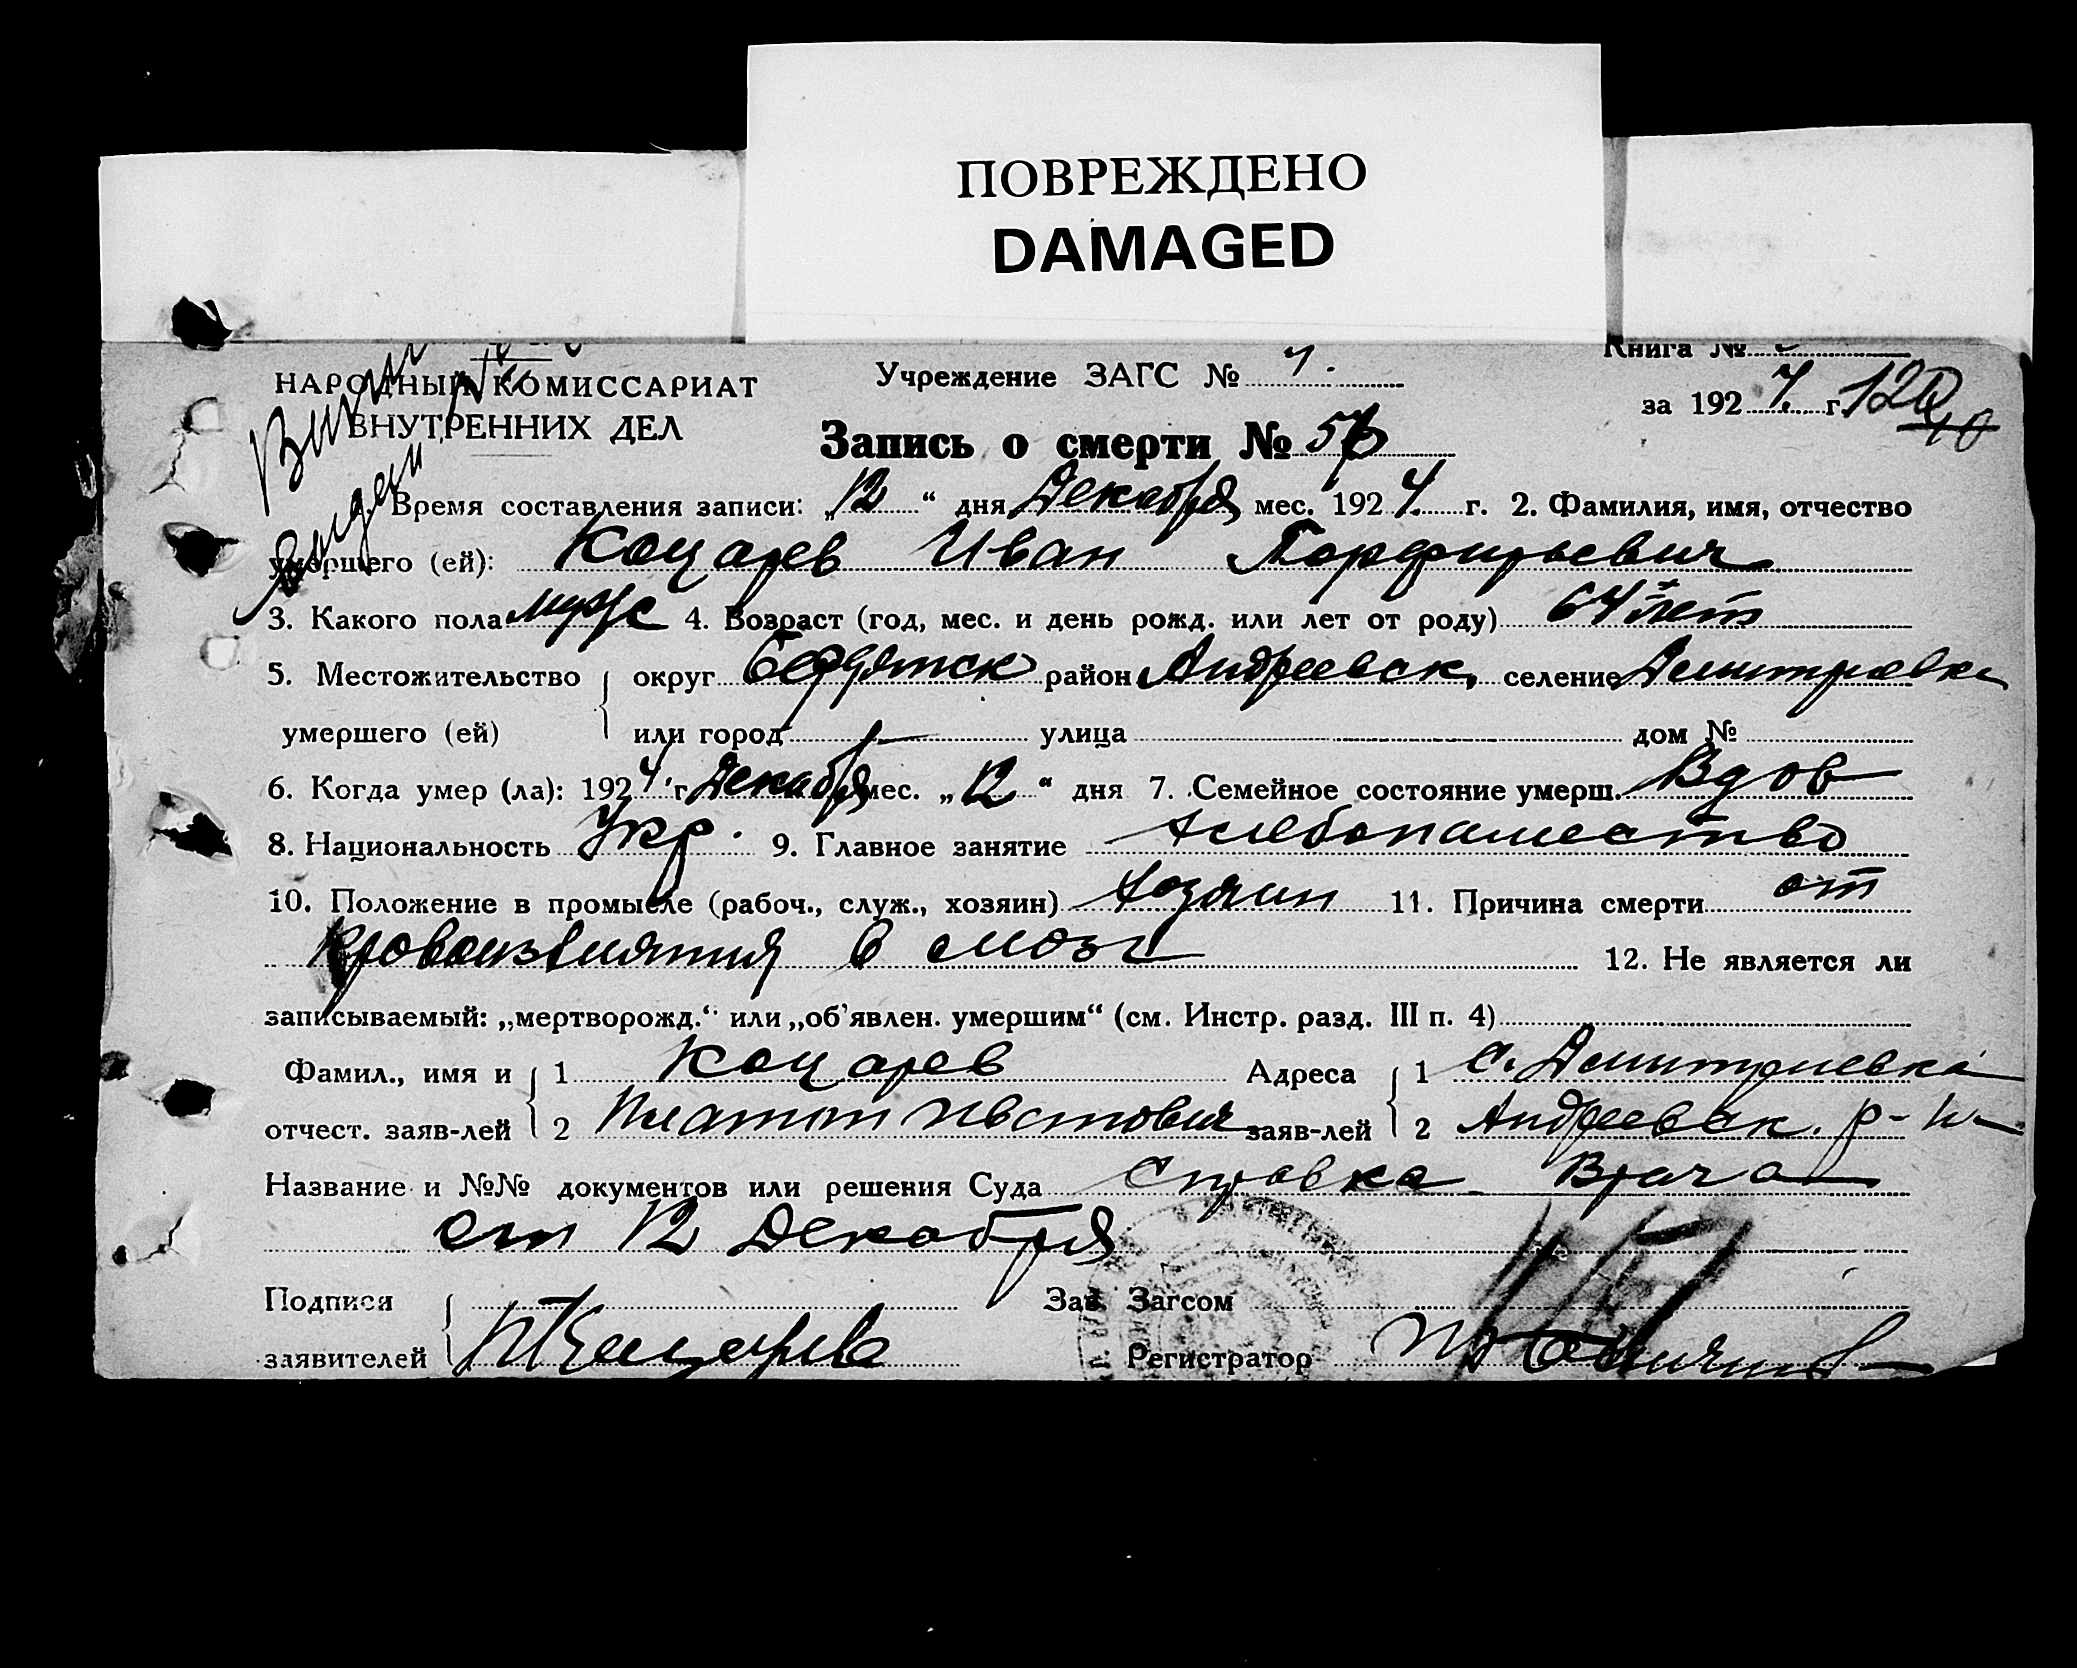 ПОВРЕЖДЕНО
DAMAGED
Книга №
НАРОДНЫЙ КОМИССАРИАТ
ВНУТРЕННИХ ДЕЛ
Учреждение ЗАГС № 4.
за 1924 г.
Запись о смерти №
Время составления записи: „12“ дня Декабря мес. 1924 г. 2. Фамилия, имя, отчество
умершего (ей): Коцарев Иван Порфирьевич
3. Какого пола муж 4. Возраст (год, мес. и день рожд. или лет от роду) 64 лет
5. Местожительство округ Бердянск район Андреевск, селение Дмитровка
умершего (ей) или город улица дом №
6. Когда умер (ла): 1924 г. Декабря мес. „12“ дня 7. Семейное состояние умерш. Вдов
8. Национальность Укр. 9. Главное занятие хлебопашество
10. Положение в промысле (рабоч., служ., хозяин) хозяин 11. Причина смерти от
Кровоизлияния в мозг 12. Не является ли
записываемый: „мертворожд.“ или „об'явлен. умершим“ (см. Инстр. разд. III п. 4)
Фамил., имя и 1 Коцарев Адреса 1 с. Дмитриевка
отчест. заяв-лей 2 Платон заяв-лей 2 Андреевск. р-н
Название и №№ документов или решения Суда Справка Врача
от 12 Декабря
Подписи Зав. Загсом
заявителей Регистратор